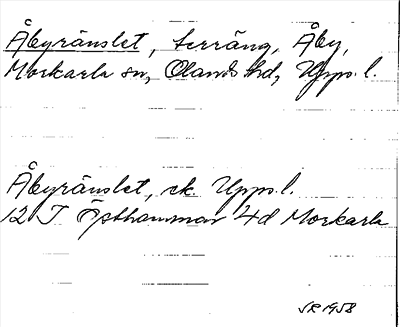 Åbyränslet, terräng, Åby,
Morkarla sn, Olands hd, Upps. l.
Åbyränslet, ek Upps. l.
12 I Östhammar 4d Morkarla
SR 1958